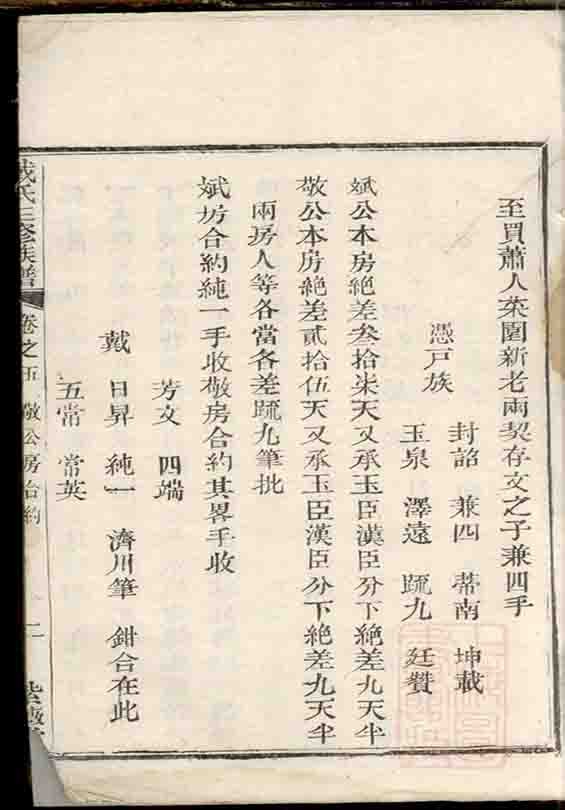 至買蕭人菜園新老兩契存文之子兼四手
封詔 兼四 蒂南 坤載
憑戶族
玉泉 澤遠 䟽九 廷贊
斌公本房絶差叁拾柒天又承玉臣漢臣分下絶差九天半
敬公本房絶差貳拾伍天又承玉臣漢臣分下絶差九天半
兩房人等各當各差䟽九筆批
斌房合約純一手收敬房合約其畧手收
芳文 四端
戴 日昇 純一 濟川筆 鉗合在此
五常 常英
戴氏三修族譜 卷之五 敬公房合約 二